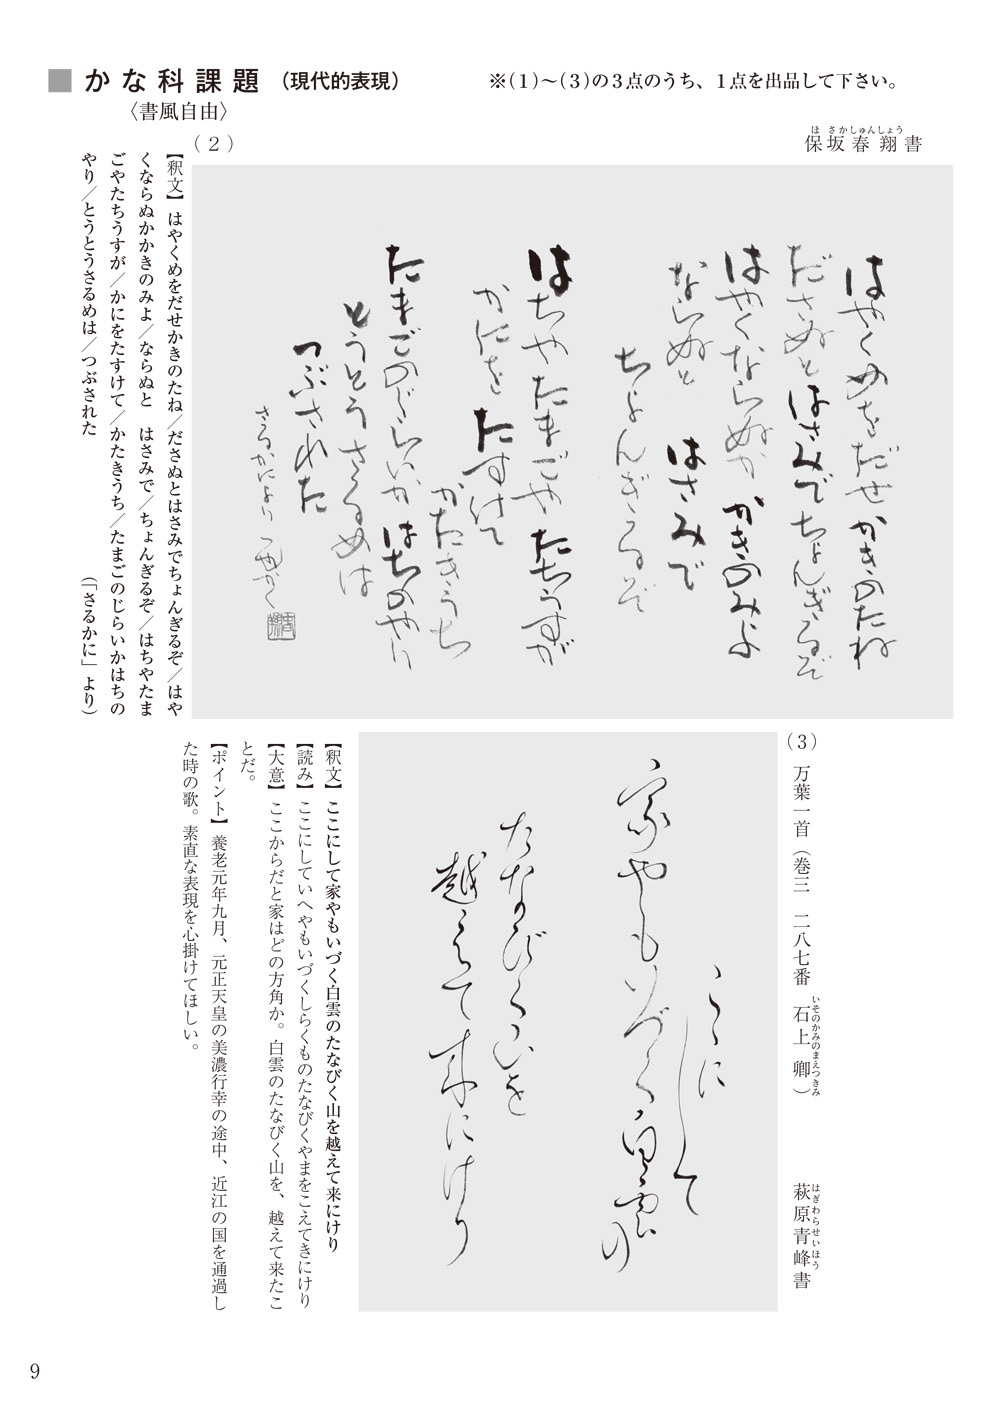 ■ かな科課題（現代的表現）
※（１）～（３）の３点のうち、１点を出品して下さい。
〈書風自由〉
（２）
保坂春翔書
ほさかしゅんしょう
はやくめをだせかきのたね
ださぬとはさみでちょんぎるぞ
はやくならぬか かきのみよ
ならぬと はさみで
ちょんぎるぞ
はちやたまごやたちうすが
かにをたすけて
かたきうち
たまごのじらいかはちのやり
とうとうさるめは
つぶされた
さるかにより
【釈文】はやくめをだせかきのたね／ださぬとはさみでちょんぎるぞ／はや
くならぬかかきのみよ／ならぬと　はさみで／ちょんぎるぞ／はちやたま
ごやたちうすが／かにをたすけて／かたきうち／たまごのじらいかはちの
やり／とうとうさるめは／つぶされた
（「さるかに」より）
（３）
万葉一首（巻三　二八七番　石上卿）
いそのかみのまえつきみ
萩原青峰書
はぎわらせいほう
ここに
して
家やもいづく白雲の
たなびく山を
越えて来にけり
【釈文】ここにして家やもいづく白雲のたなびく山を越えて来にけり
【読み】ここにしていへやもいづくしらくものたなびくやまをこえてきにけり
【大意】ここからだと家はどの方角か。白雲のたなびく山を、越えて来たこ
とだ。
【ポイント】養老元年九月、元正天皇の美濃行幸の途中、近江の国を通過し
た時の歌。素直な表現を心掛けてほしい。
9